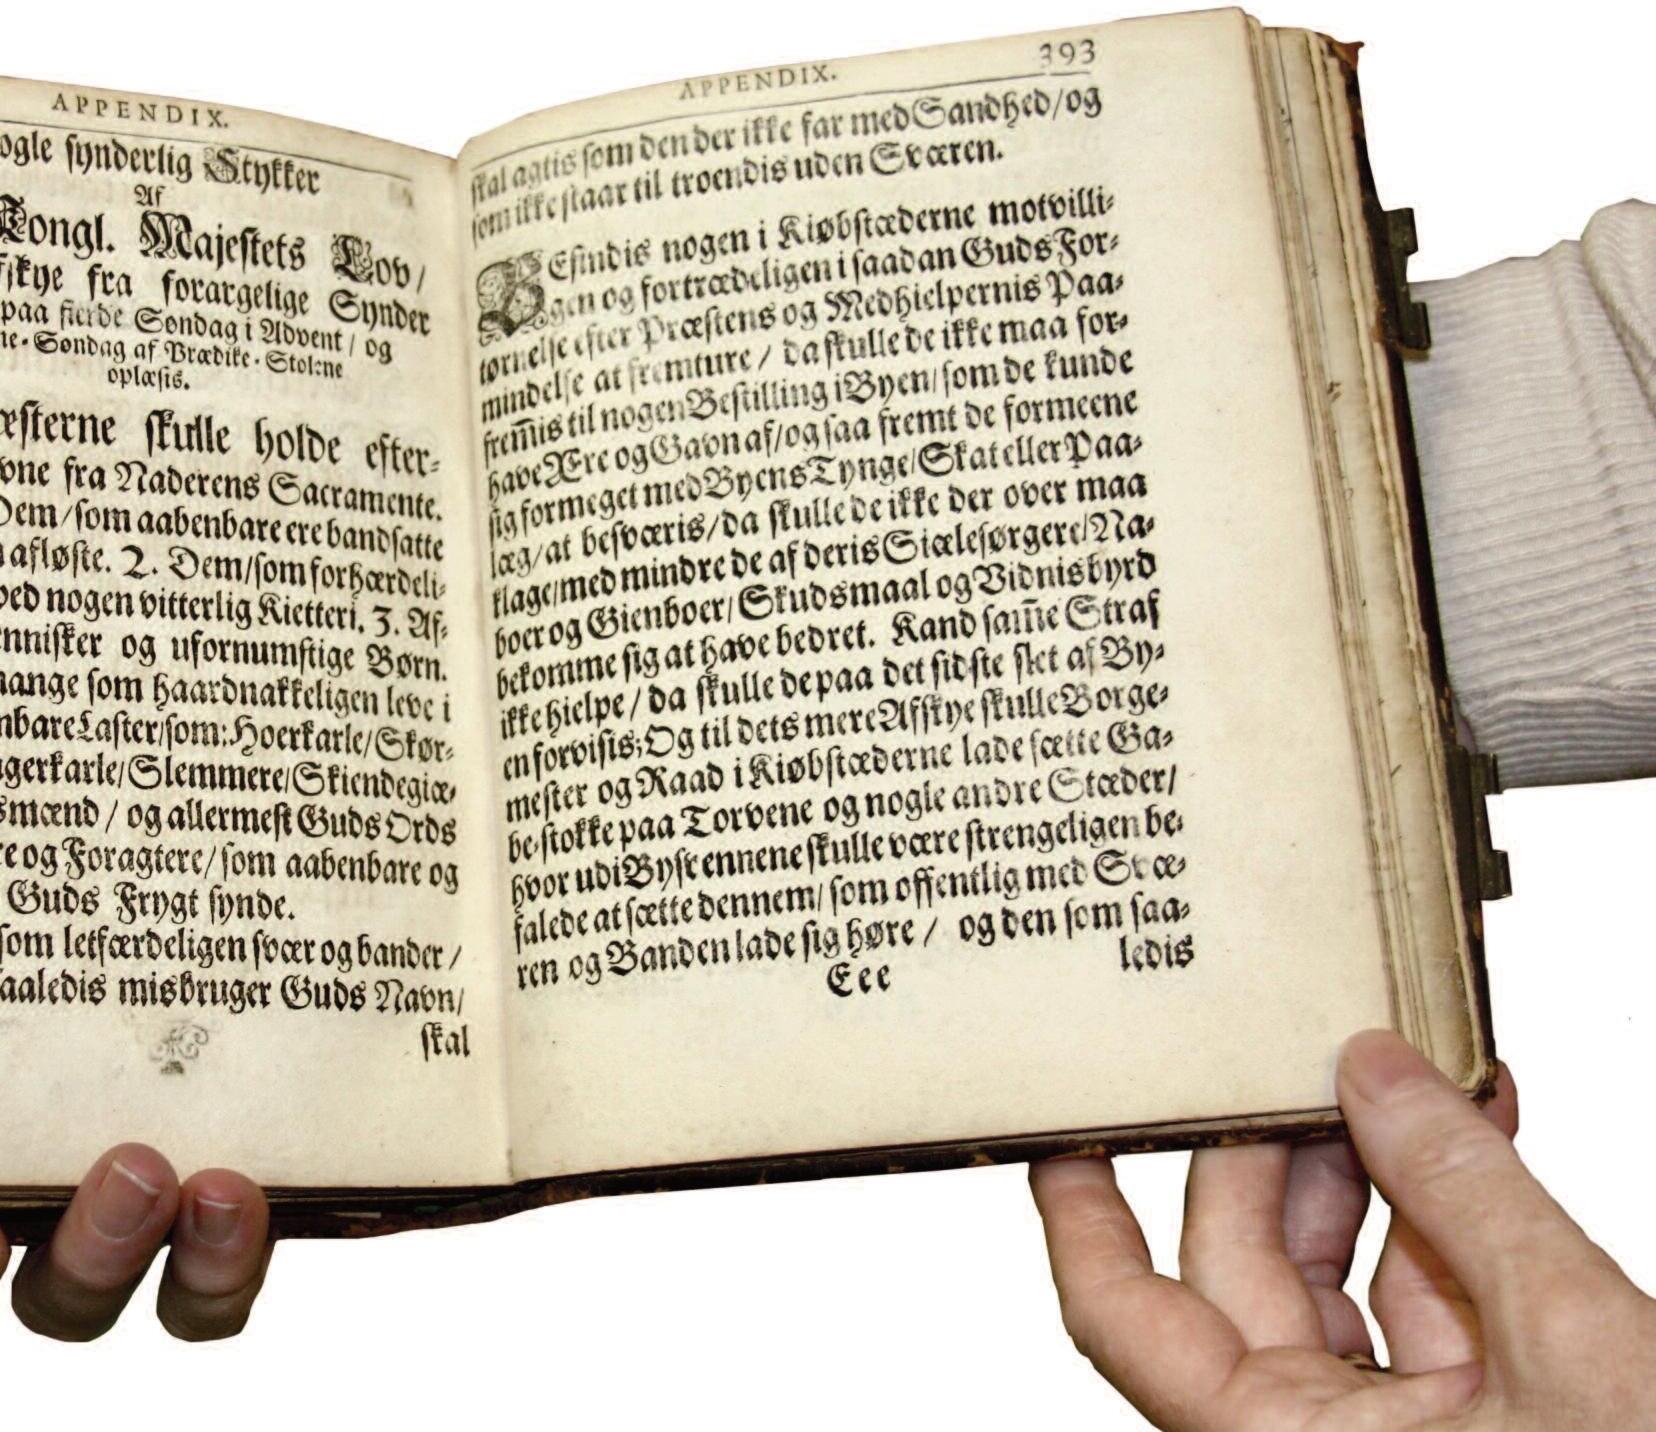 APPENDIX.
ogle synderlig Stykker
Af
Kongl. Majestets Lov/
fskye fra forargelige Synder
paa fierde Søndag i Advent/ og
ne-Søndag af Prædike-Stolene
oplæsis.
æsterne skulle holde efter-
vne fra Naderens Sacramente.
Dem/som aabenbare ere bandsatte
afløste. 2. Dem/som forhærdeli-
ved nogen vitterlig Kietteri. 3. Af-
ennisker og ufornumftige Børn.
mange som haardnakkeligen leve i
nbare Laster/som: Hoerkarle/ Skør-
gerkarle/Slemmere/Skiendegiæ-
smænd / og allermest Guds Ords
re og Foragtere/ som aabenbare og
Guds Frygt synde.
som letfærdeligen svær og bander /
aaledis misbruger Guds Navn/
skal
APPENDIX. 393
skal agtis som den der ikke far med Sandhed/og
som ikke staar til troendis uden Sværen.
BEfindis nogen i Kiøbstæderne motvilli-
gen og fortrædeligen i saadan Guds For-
tørnelse efter Præstens og Medhielpernis Paa-
mindelse at fremture / da skulle de ikke maa for-
frem̄is til nogen Bestilling i Byen/ som de kunde
have Ære og Gavn af/og saa fremt de formeene
sig formeget med Byens Tynge/Skat eller Paa-
læg/ at besværis/da skulle de ikke der over maa
klage/med mindre de af deris Siælesørgere/Na-
boer og Gienboer/ Skudsmaal og Vidnisbyrd
bekomme sig at have bedret. Kand sam̄e Straf
ikke hielpe/ da skulle de paa det sidste slet af By-
en forvisis; Og til dets mere Afskye skulle Borge-
mester og Raad i Kiøbstæderne lade sætte Ga-
be-stokke paa Torvene og nogle andre Stæder/
hvor udi Bysvennene skulle være strengeligen be-
falede at sætte dennem/ som offentlig med Svæ-
ren og Banden lade sig høre / og den som saa-
Eee ledis